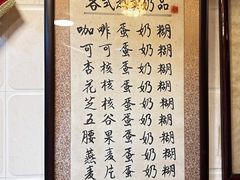 各式奶品
咖啡蛋奶糊
可可蛋奶糊
杏蛋奶糊
花蛋奶糊
芝蛋奶糊
五谷蛋奶糊
腰果蛋奶糊
燕麦蛋奶糊
麦片蛋奶糊